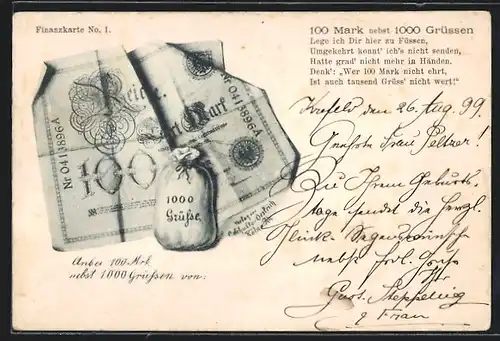 Finanzkarte No. 1.
100 Mark nebst 1000 Grüssen
Lege ich Dir hier zu Füssen,
Umgekehrt konnt' ich's nicht senden,
Hatte grad' nicht mehr in Händen.
Denk': „Wer 100 Mark nicht ehrt,
Ist auch tausend Grüss' nicht wert!"
Nr 0413896A
Reichs
Hundert Mark
100
Nr 0413896A
1000
Grüße
Anbei 100 Mrk.
nebst 1000 Grüssen von:
Krefeld den 26. Aug. 99.
Geehrte Frau Peltzer!
Zu Ihrem Geburts
tage sendet die herzl.
Glück- Segenswünsche
nebst
Ihr
Gust. Steppeling
& Frau